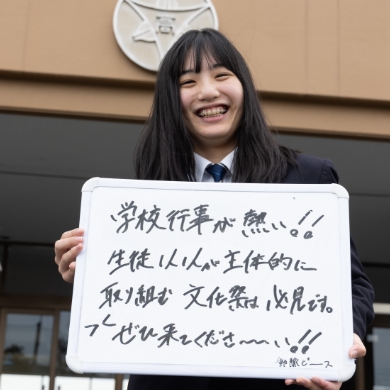 高
学校行事が熱い!!
生徒1人1人が主体的に
取り組む文化祭は必見です。
ぜひ来てくださ〜〜い!!